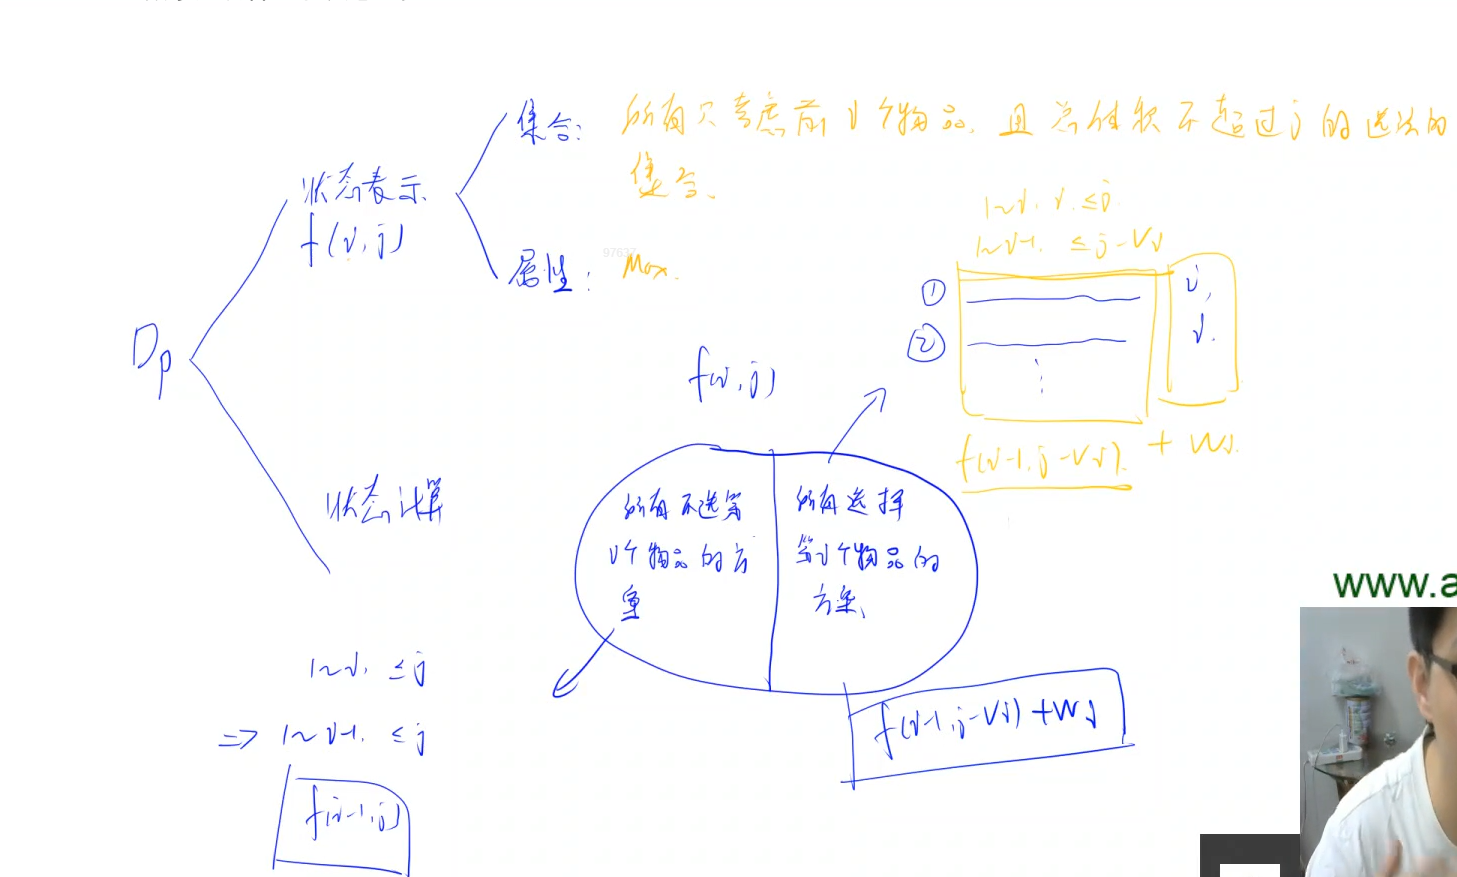 集合: 所有只考虑前i个物品, 且总体积不超过j的选法的
集合.
状态表示
f(i,j)
属性: Max.
97637
Dp
1~i, i. ≤j
1~i-1. ≤j-Vi
① i,
② i.
⋮
f(i-1,j-Vi). + Wi.
f(i,j)
状态计算
所有不选第
i个物品的方
案
所有选择
第i个物品的
方案.
www.a
1~i, ≤j
=> 1~i-1. ≤j
f(i-1,j)
f(i-1,j-Vi)+Wi